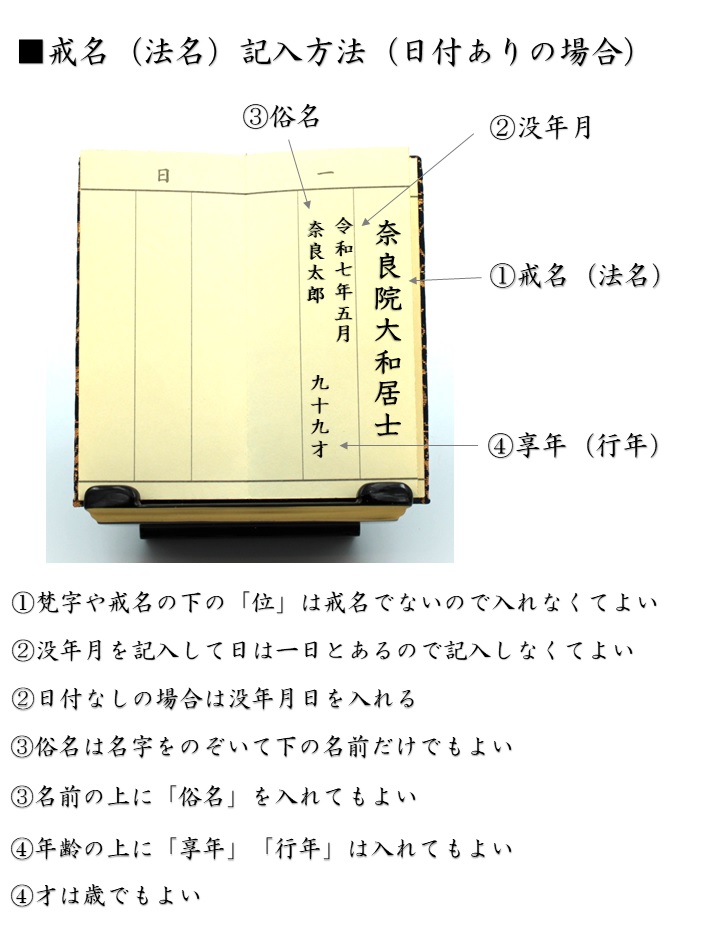 ■戒名（法名）記入方法（日付ありの場合）
③俗名
②没年月
一日
奈良院大和居士
令和七年五月
奈良太郎 九十九才
①戒名（法名）
④享年（行年）
①梵字や戒名の下の「位」は戒名でないので入れなくてよい
②没年月を記入して日は一日とあるので記入しなくてよい
②日付なしの場合は没年月日を入れる
③俗名は名字をのぞいて下の名前だけでもよい
③名前の上に「俗名」を入れてもよい
④年齢の上に「享年」「行年」は入れてもよい
④才は歳でもよい